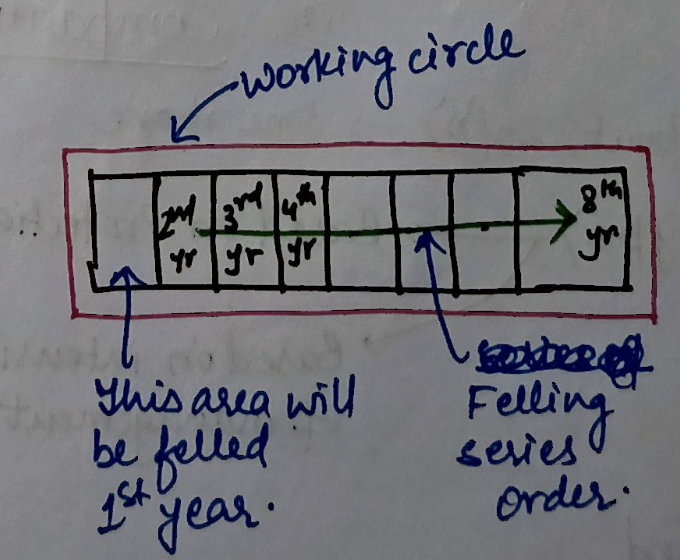 Working circle
2nd yr
3rd yr
4th yr
8th yr
This area will
be felled
1st year.
Felling
series
order.